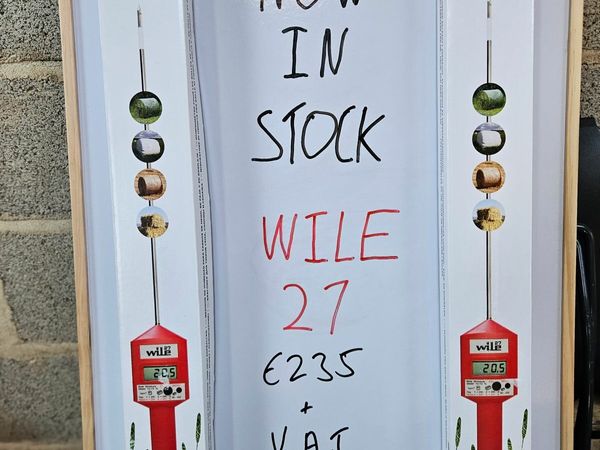 NOW
IN
STOCK
WILE
27
€235
+
VAT
wile 27
20.5
wile 27
20.5